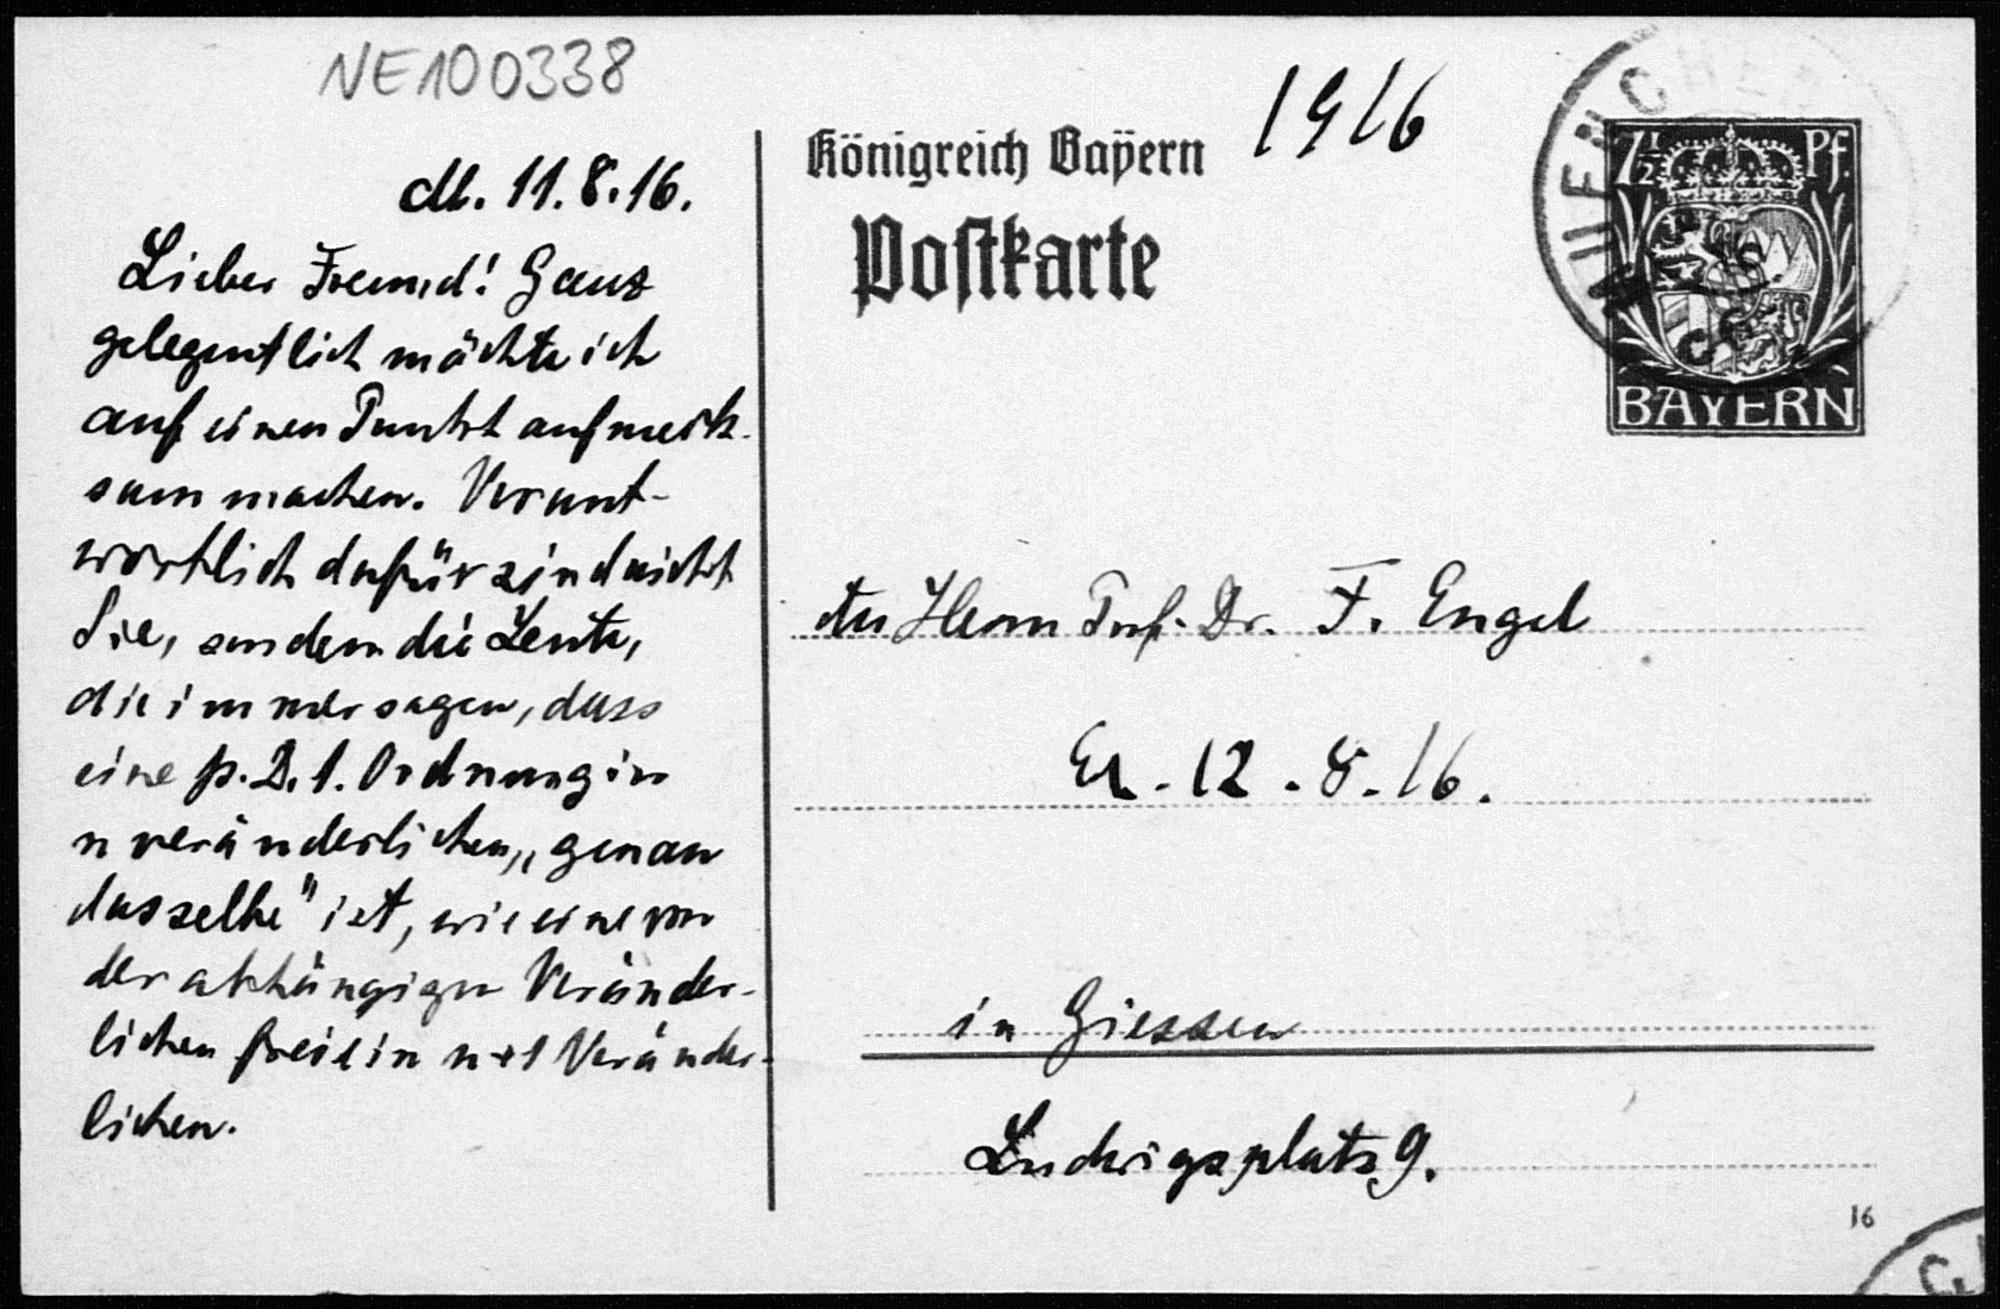 NE100338
M. 11.8.16.
Lieber Freund! Ganz
gelegentlich möchte ich
auf einen Punkt aufmerk-
sam machen. Verant-
wortlich dafür sind nicht
Sie, sondern die Leute,
die immer sagen, dass
eine p. D. 1. Ordnung in
n veränderlichen „genau
dasselbe" ist, wie eine von
der abhängigen Veränder-
lichen freie in n+1 Veränder-
lichen.
1916
Königreich Bayern
Postkarte
MUENCHEN
7½ Pf.
BAYERN
An Herrn Prof. Dr. F. Engel
Er. 12.8.16.
in Giessen
Ludwigsplatz 9.
16